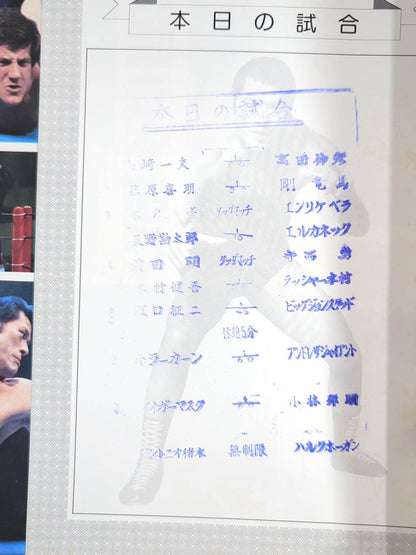 本日の試合
本日の試合
崎一夫 高田伸彦
原喜明 剛竜馬
タッグマッチ エンリケベラ
勘太郎 エルカネック
前田明 タッグマッチ 寺西勇
木村健吾 ラッシャー木村
坂口征二 ビッグジョンスタッド
休憩5分
キラーカーン アンドレザジャイアント
タイガーマスク 小林邦明
アントニオ猪木 無制限 ハルクホーガン